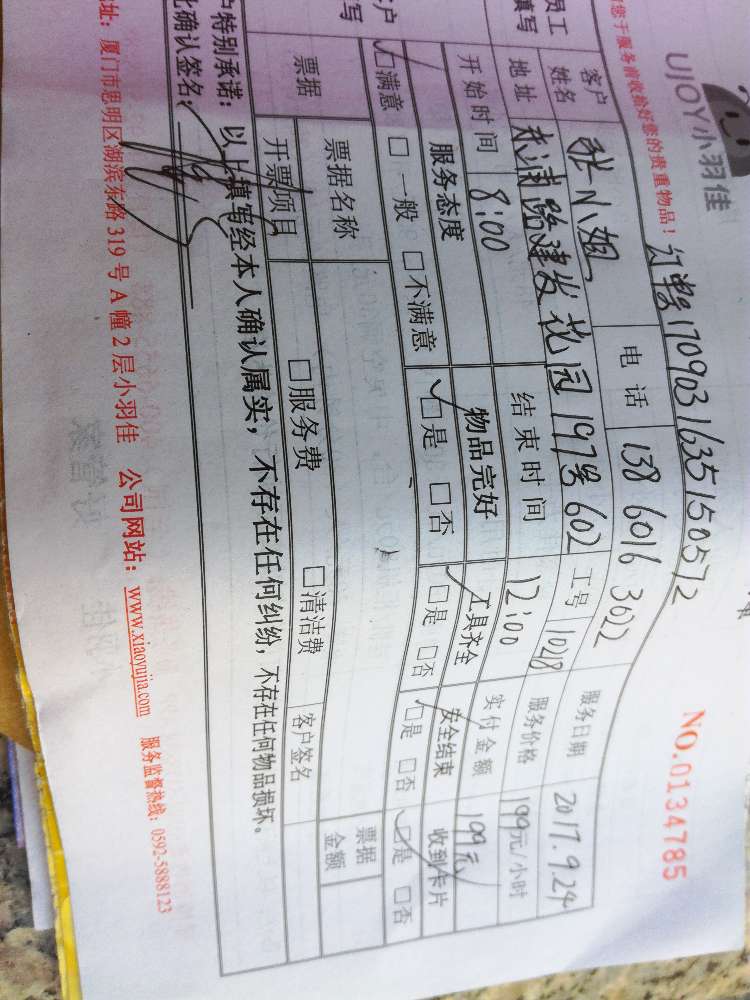 UJOY小羽佳
NO.0134785
您于服务前收拾好您的贵重物品! 订单170903163515057 2
员工
填写
客户
姓名 张小姐 电话 138 6016 3622 服务日期 2017.9.24
地址 建发花园197号602 工号 1028 服务价格 199元/小时
开始时间 8:00 结束时间 12:00 实付金额 199元
客户
填写
服务态度 物品完好 工具齐全 安全结束 收到卡片
☑满意 □一般 □不满意 ☑是 □否 ☑是 □否 ☑是 □否 ☑是 □否
票据 票据名称 票据
金额
开票项目 □服务费 □清洁费 客户签名
户特别承诺:以上填写经本人确认属实,不存在任何纠纷,不存在任何物品损坏。
此确认签名:
址:厦门市思明区湖滨东路 319 号 A 幢 2 层小羽佳 公司网站:www.xiaoyujia.com 服务监督热线:0592-5888123